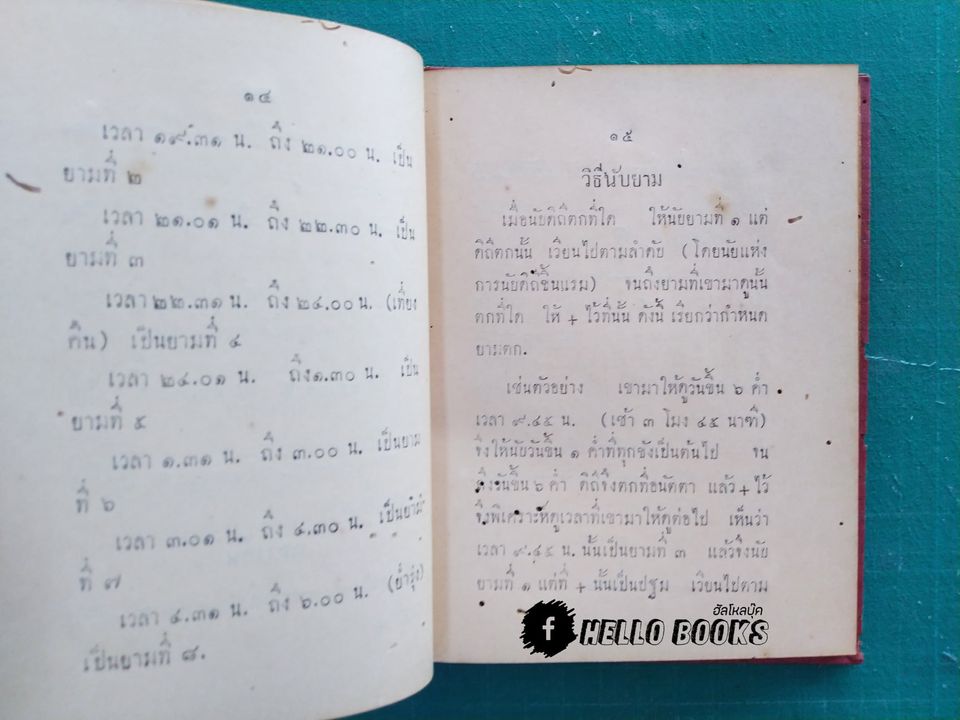 ๑๔
เวลา ๑๙.๓๑ น. ถึง ๒๑.๐๐ น. เป็น
ยามที่ ๒
เวลา ๒๑.๐๑ น. ถึง ๒๒.๓๐ น. เป็น
ยามที่ ๓
เวลา ๒๒.๓๑ น. ถึง ๒๔.๐๐ น. (เที่ยง
คืน) เป็นยามที่ ๔
เวลา ๒๔.๐๑ น. ถึง๑.๓๐ น. เป็น
ยามที่ ๕
เวลา ๑.๓๑ น. ถึง ๓.๐๐ น. เป็นยาม
ที่ ๖
เวลา ๓.๐๑ น. ถึง ๔.๓๐ น. เป็นยาม
ที่ ๗
เวลา ๔.๓๑ น. ถึง ๖.๐๐ น. (ย่ำรุ่ง)
เป็นยามที่ ๘.
๑๕
วิธีนับยาม
เมื่อนับดิถีตกที่ใด ให้นับยามที่ ๑ แต่
ดิถีตกนั้น เวียนไปตามลำดับ (โดยนัยแห่ง
การนับดิถีขึ้นแรม) จนถึงยามที่เขามาดูนั้น
ตกที่ใด ให้ + ไว้ที่นั้น ดังนี้ เรียกว่ากำหนด
ยามตก.
เช่นตัวอย่าง เขามาให้ดูวันขึ้น ๖ ค่ำ
เวลา ๙.๔๕ น. (เช้า ๓ โมง ๔๕ นาฑี)
จึงให้นับวันขึ้น ๑ ค่ำที่ทุกขังเป็นต้นไป จน
ถึงวันขึ้น ๖ ค่ำ ดิถีจึงตกที่อนัตตา แล้ว + ไว้
จึงพิเคราะห์ดูเวลาที่เขามาให้ดูต่อไป เห็นว่า
เวลา ๙.๔๕ น. นั้นเป็นยามที่ ๓ แล้วจึงนับ
ยามที่ ๑ แต่ที่ + นั้นเป็นปฐม เวียนไปตาม
ฮัลโหลบุ๊ค
HELLO BOOKS